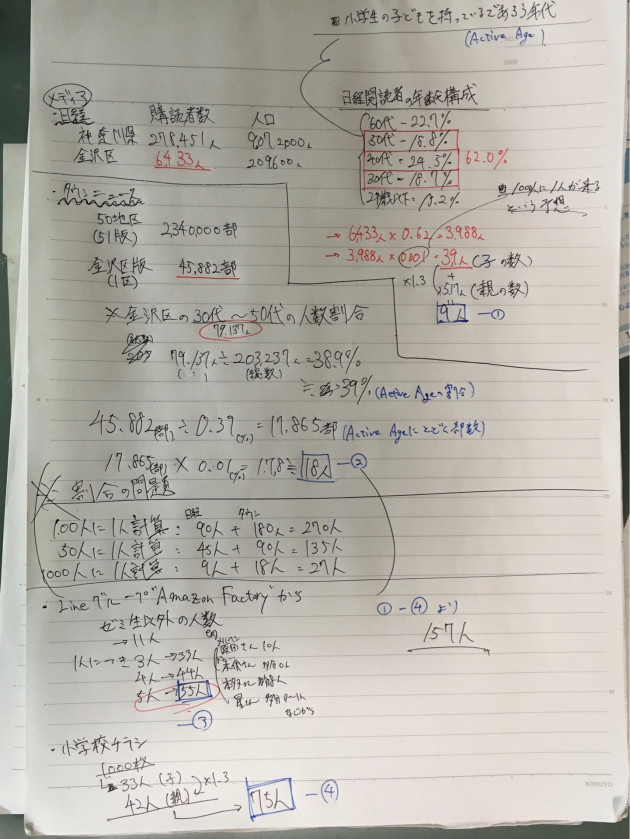 小学生の子どもを持っているであろう年代
(Active Age)
メディア
・日経
購読者数
人口
神奈川県 278,451人 9072000人
金沢区 6433人 209600人
日経閲読者の年齢構成
60代-22.7%
50代-18.8%
40代=24.5%
30代-18.7%
62.0%
29歳以下=15.2%
100人に1人が来る
という予想
→ 6433人×0.62=3,988人
→ 3,988人×0.001=3.9人(子の数)
×1.3
5.17人(親の数)
9人 -①
・タウンニュース
50地区
(51版)
2340000部
金沢区版
(1区)
45,882部
※金沢区の30代~50代の人数割合
79,137人
79,137人÷203237人=38.9%
(総数)
≒39% (Active Ageの割合)
45.882部÷0.39(%)=17.865部 (Active Ageにとどく部数)
17.865部×0.01(%)=178≒18人 -②
※割合の問題
日経 タウン
100人に1人計算: 90人+180人=270人
50人に1人計算: 45人+90人=135人
1000人に1人計算: 9人+18人=27人
・Lineグループ"Amazon Factory"から
ゼミ生以外の人数
→11人
1人につき3人→33人
4人→44人
5人→55人
-③
原田さん 10人
などから
①-④より
157人
・小学校チラシ
1000枚
33人(子) ×1.3
42人(親) → 75人 -④
KOKUYO